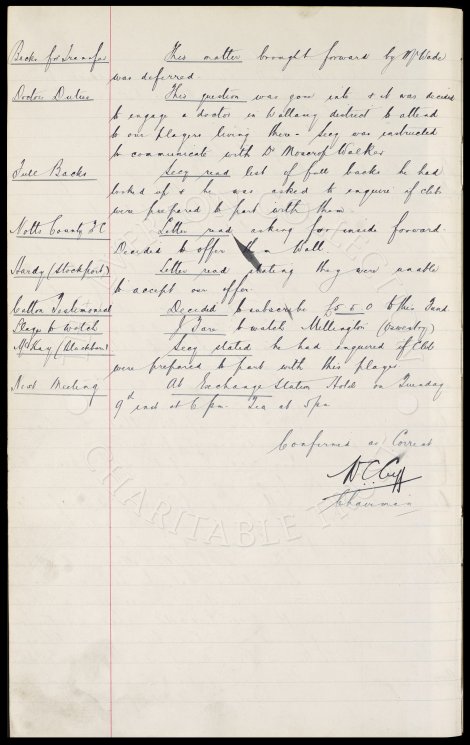 Backs for Transfer This matter brought forward by Mr Wade
was deferred
Doctors Duties This question was gone into & it was decided
to engage a doctor in Waltong district to attend
to our players living there. Secy was instructed
to communicate with Dr Moscrop Walker
Full Backs Secy read list of full backs he had
looked up & he was asked to enquire if clubs
were prepared to part with them.
Notts County F C Letter read asking for inside forward.
Decided to offer them Wall.
Hardy (Stockport) Letter read stating they were unable
to accept our offer.
Testimonial Decided to subscribe £5 5 0 to this Fund
Player to watch J Fare to watch Millington (Oswestry)
McKay (Blackburn) Secy stated he had enquired if Club
were prepared to part with this player
Next Meeting At Exchange Station Hotel on Tuesday
9th inst at 6 pm. Tea at 5 pm
Confirmed as Correct
W.C. Cuff
Chairman
CHARITABLE